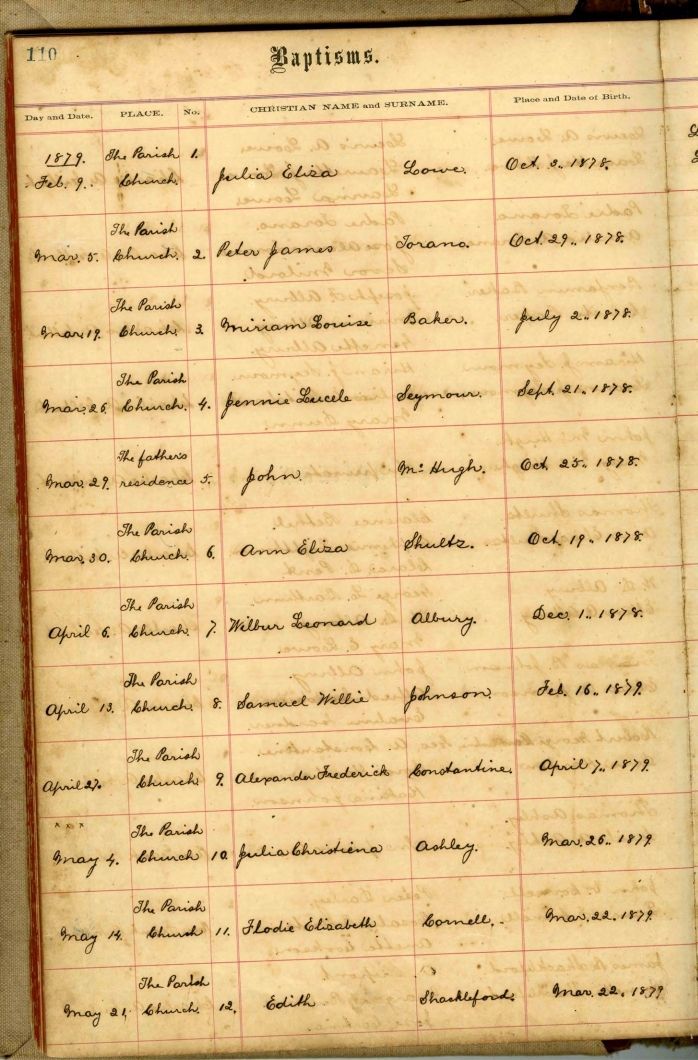 110
Baptisms.
Day and Date. PLACE. No. CHRISTIAN NAME and SURNAME. Place and Date of Birth.
1879. The Parish 1.
Feb. 9. Church. Julia Eliza Lowe. Oct. 2.. 1878.
The Parish
Mar. 5. Church. 2. Peter James Torano. Oct. 29.. 1878.
The Parish
Mar. 19. Church. 3. Miriam Louise Baker. July 2.. 1878.
The Parish
Mar. 26. Church. 4. Jennie Lucele Seymour. Sept. 21.. 1878.
The father's
Mar. 29. residence 5. John. Mc Hugh. Oct. 25.. 1878.
The Parish
Mar. 30. Church. 6. Ann Eliza Shultz. Oct. 19.. 1878.
The Parish
April 6. Church. 7. Wilbur Leonard Albury. Dec. 1.. 1878.
The Parish
April 13. Church. 8. Samuel Willie Johnson. Feb. 16.. 1879.
The Parish
April 27. Church 9. Alexander Frederick Constantine. April 7.. 1879.
x x x The Parish
May 4. Church 10. Julia Christiena Ashley. Mar. 26.. 1879.
The Parish
May 14. Church 11. Flodie Elizabeth Cornell. Mar. 22. 1879.
The Parish
May 21. Church. 12. Edith Shackleford. Mar. 22.. 1879